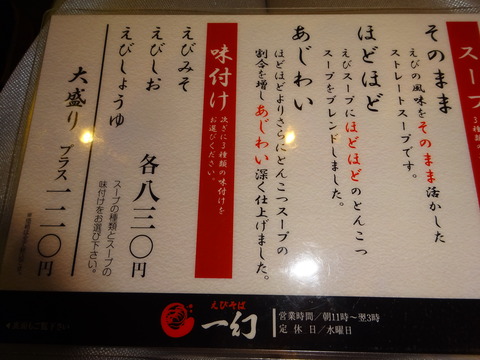 スープ
3種類の
そのまま
えびの風味をそのまま活かした
ストレートスープです。
ほどほど
えびスープにほどほどのとんこつ
スープをブレンドしました。
あじわい
ほどほどよりさらにとんこつスープの
割合を増しあじわい深く仕上げました。
味付け
次ぎに3種類の味付けを
お選びください。
えびみそ
えびしお
えびしょうゆ
各八三〇円
スープの種類とスープの
味付けをお選び下さい。
大盛り プラス一二〇円
えびそば
一幻
営業時間／朝11時〜翌3時
定休日／水曜日